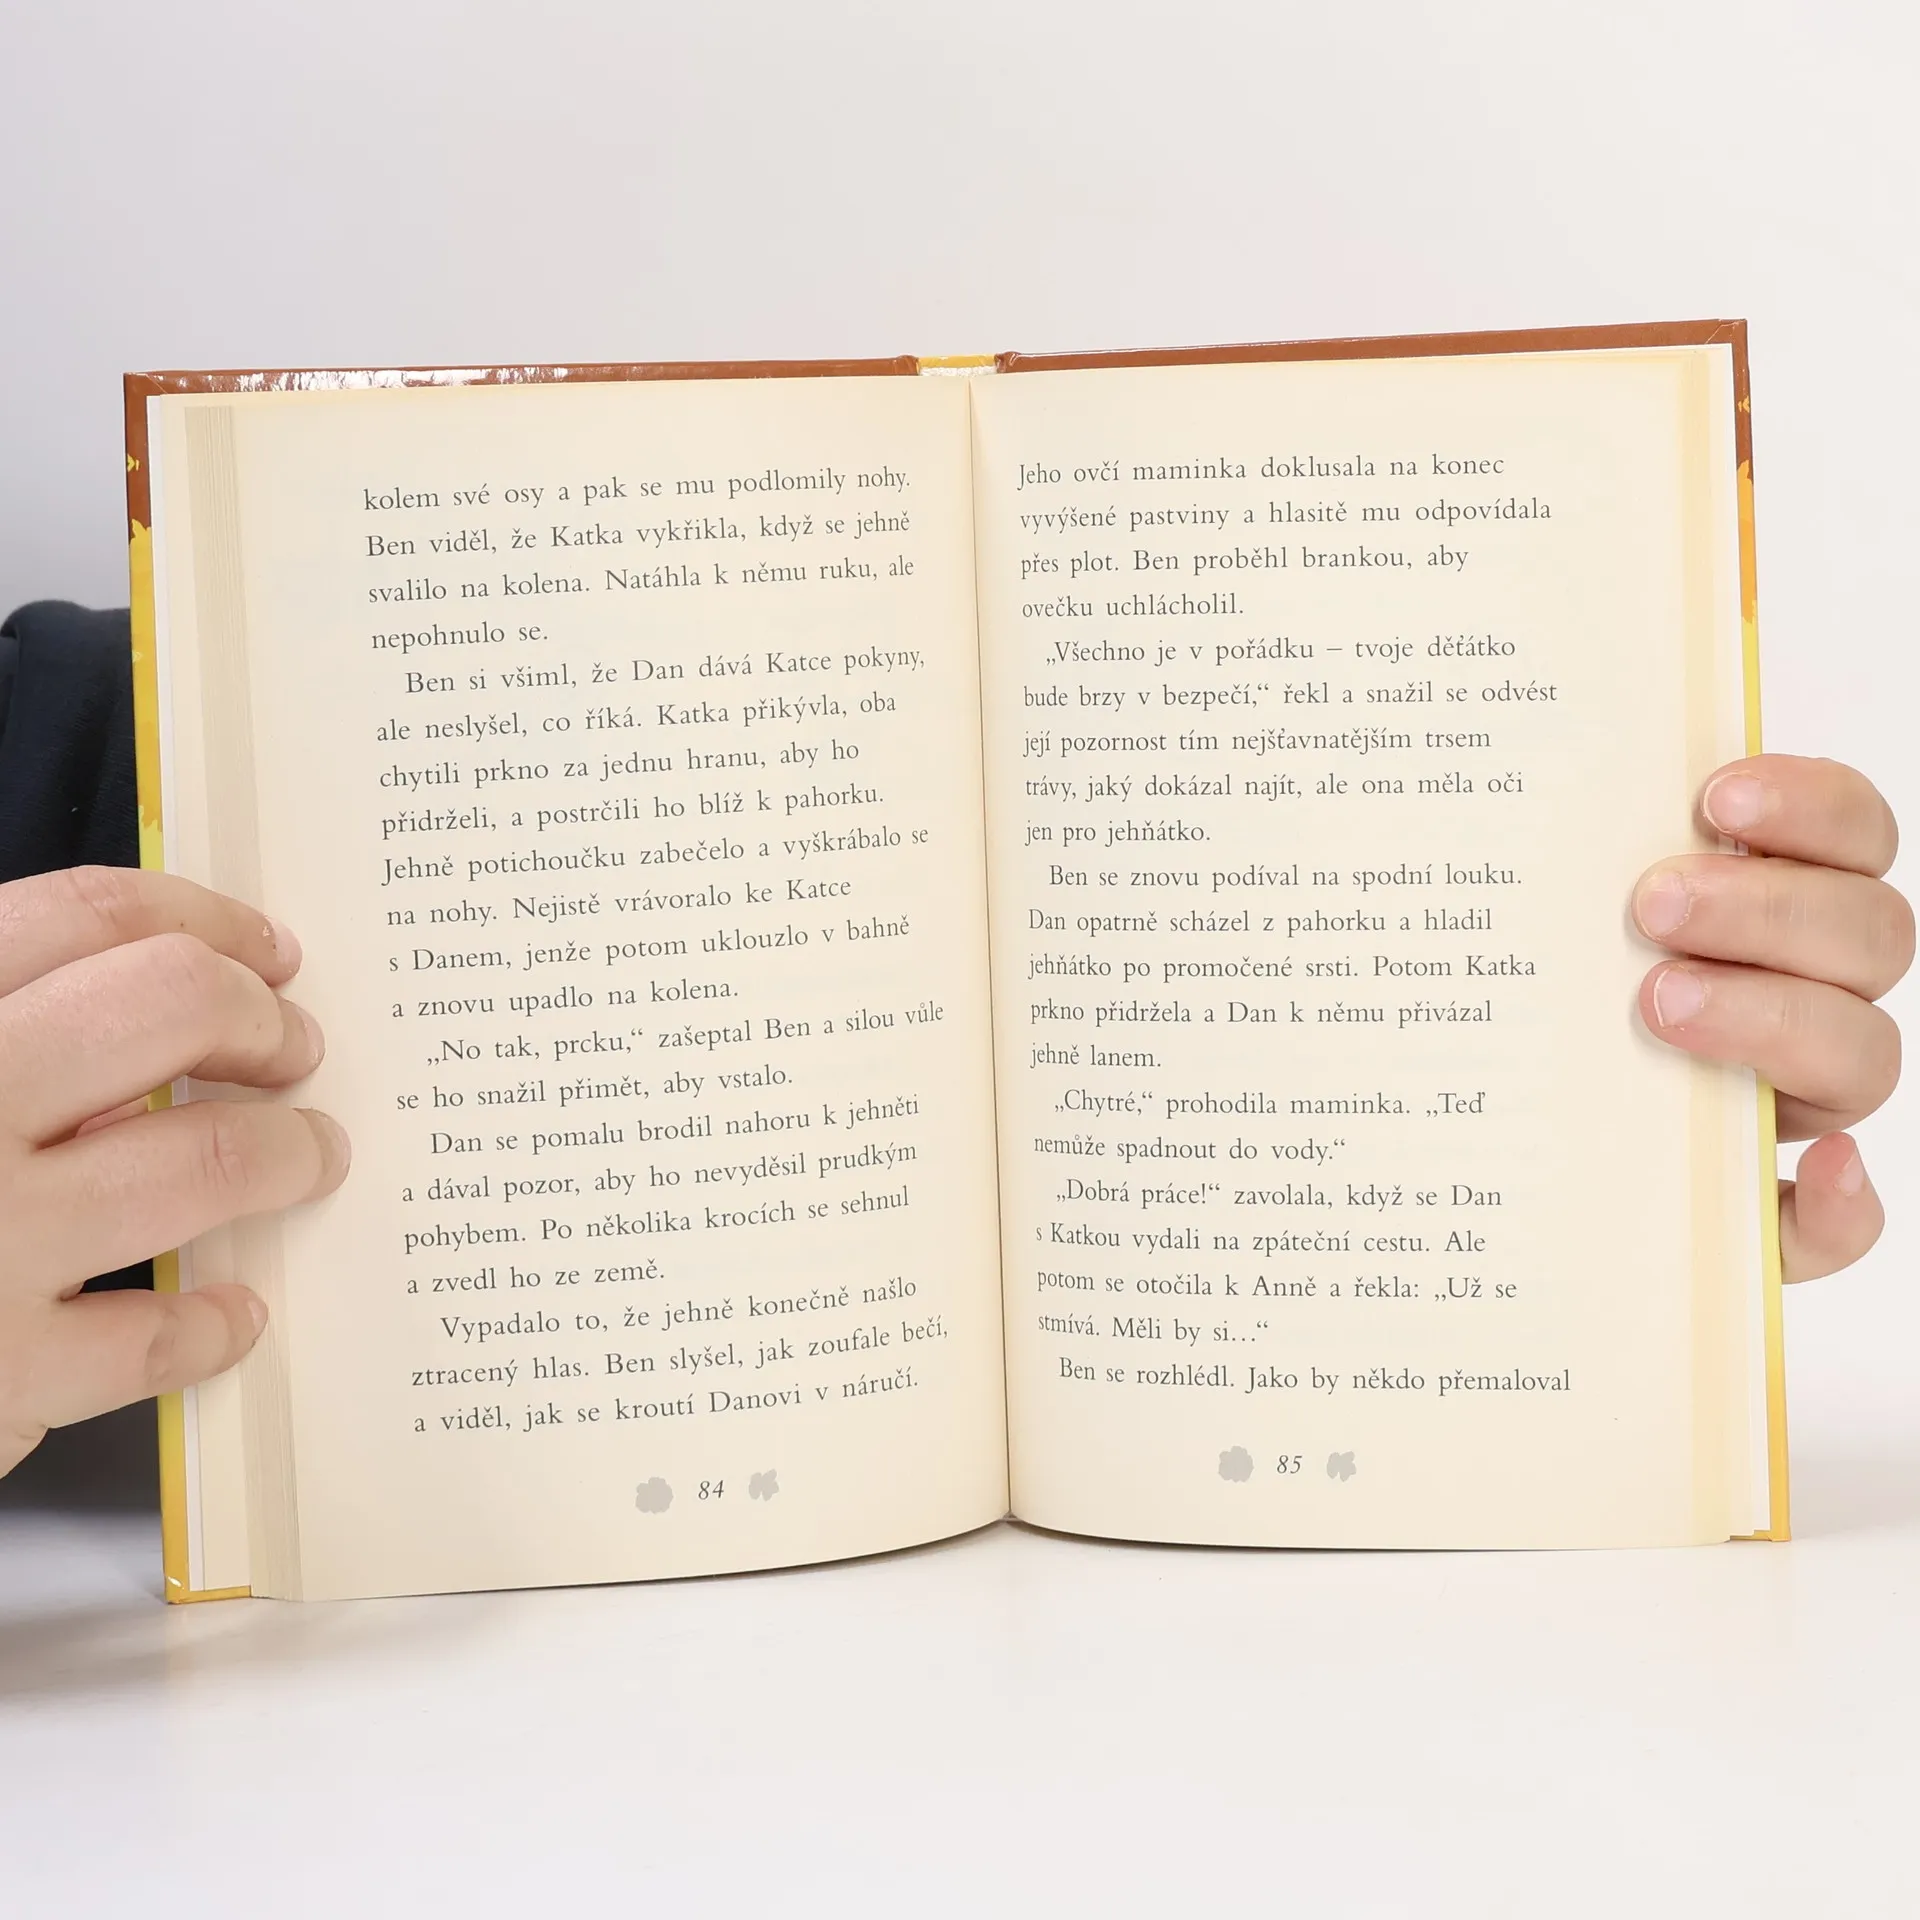 kolem své osy a pak se mu podlomily nohy.
Ben viděl, že Katka vykřikla, když se jehně
svalilo na kolena. Natáhla k němu ruku, ale
nepohnulo se.
Ben si všiml, že Dan dává Katce pokyny,
ale neslyšel, co říká. Katka přikývla, oba
chytili prkno za jednu hranu, aby ho
přidrželi, a postrčili ho blíž k pahorku.
Jehně potichoučku zabečelo a vyškrábalo se
na nohy. Nejistě vrávoralo ke Katce
s Danem, jenže potom uklouzlo v bahně
a znovu upadlo na kolena.
„No tak, prcku,“ zašeptal Ben a silou vůle
se ho snažil přimět, aby vstalo.
Dan se pomalu brodil nahoru k jehněti
a dával pozor, aby ho nevyděsil prudkým
pohybem. Po několika krocích se sehnul
a zvedl ho ze země.
Vypadalo to, že jehně konečně našlo
ztracený hlas. Ben slyšel, jak zoufale bečí,
a viděl, jak se kroutí Danovi v náručí.
84
Jeho ovčí maminka doklusala na konec
vyvýšené pastviny a hlasitě mu odpovídala
přes plot. Ben proběhl brankou, aby
ovečku uchlácholil.
„Všechno je v pořádku – tvoje děťátko
bude brzy v bezpečí,“ řekl a snažil se odvést
její pozornost tím nejšťavnatějším trsem
trávy, jaký dokázal najít, ale ona měla oči
jen pro jehňátko.
Ben se znovu podíval na spodní louku.
Dan opatrně scházel z pahorku a hladil
jehňátko po promočené srsti. Potom Katka
prkno přidržela a Dan k němu přivázal
jehně lanem.
„Chytré,“ prohodila maminka. „Teď
nemůže spadnout do vody.“
„Dobrá práce!“ zavolala, když se Dan
s Katkou vydali na zpáteční cestu. Ale
potom se otočila k Anně a řekla: „Už se
stmívá. Měli by si…“
Ben se rozhlédl. Jako by někdo přemaloval
85